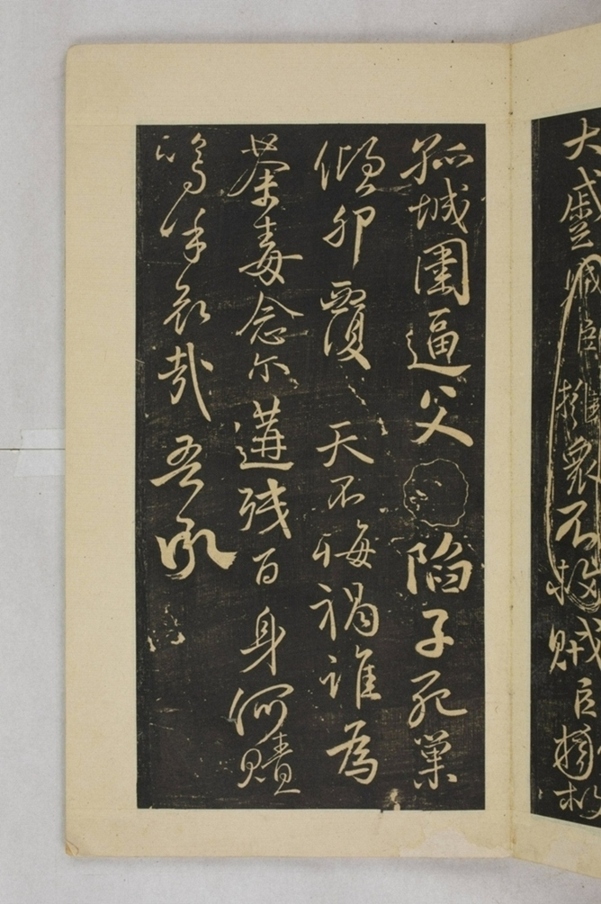 大蹙賊臣擁衆不救賊臣擁
孤城圍逼父陷子死巢
傾卵覆天不悔禍誰為
荼毒念爾遘殘百身何贖
嗚呼哀哉吾承